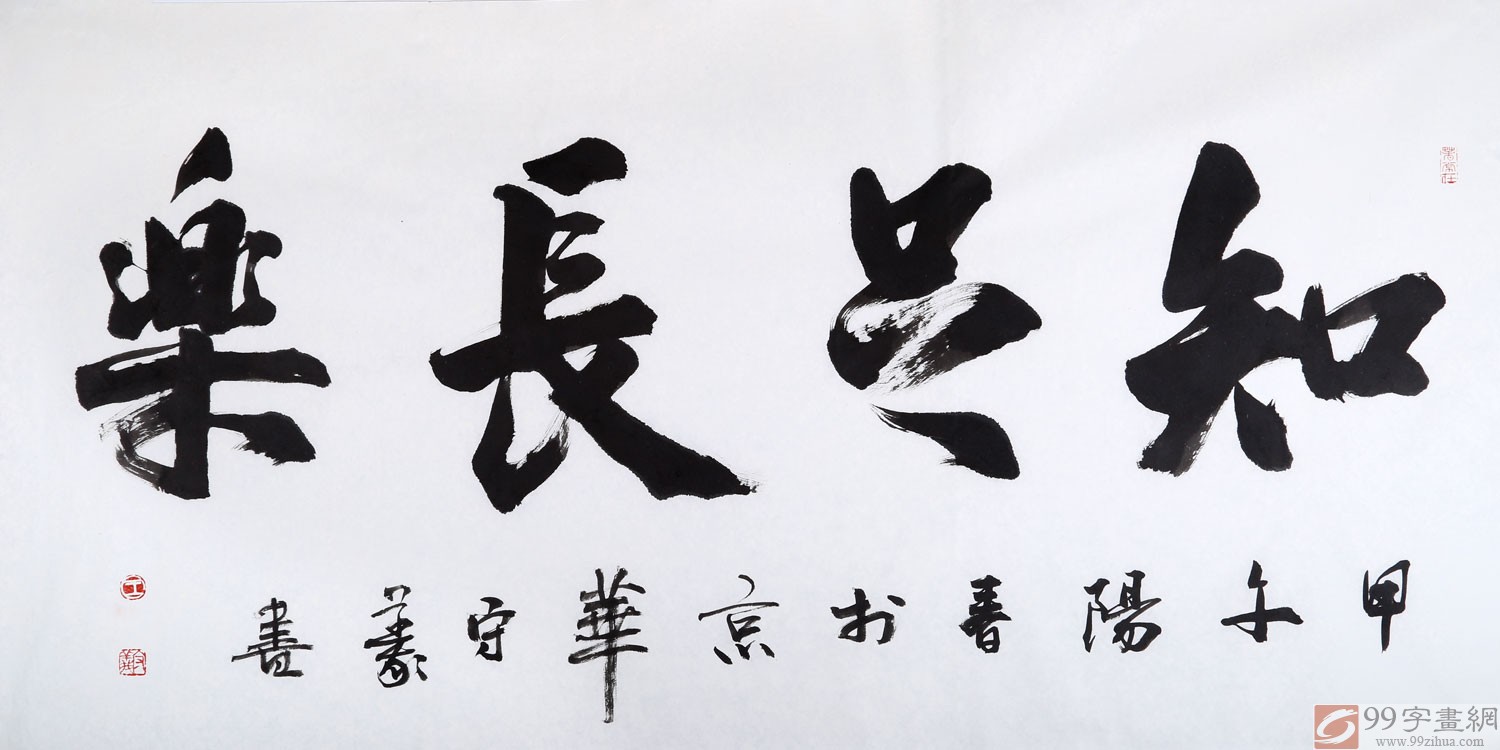 知足長樂
甲午陽春於京華守義書
99字畫網
www.99zihua.com